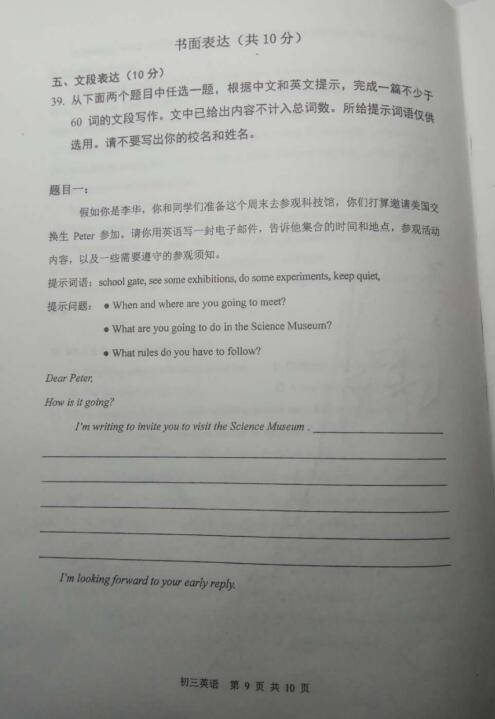 书面表达（共 10 分）
五、文段表达（10 分）
39. 从下面两个题目中任选一题，根据中文和英文提示，完成一篇不少于
60 词的文段写作。文中已给出内容不计入总词数。所给提示词语仅供
选用。请不要写出你的校名和姓名。
题目一：
假如你是李华，你和同学们准备这个周末去参观科技馆，你们打算邀请美国交
换生 Peter 参加。请你用英语写一封电子邮件，告诉他集合的时间和地点，参观活动
内容，以及一些需要遵守的参观须知。
提示词语：school gate, see some exhibitions, do some experiments, keep quiet,
提示问题： ● When and where are you going to meet?
● What are you going to do in the Science Museum?
● What rules do you have to follow?
Dear Peter,
How is it going?
I'm writing to invite you to visit the Science Museum .
I'm looking forward to your early reply.
初三英语 第 9 页 共 10 页